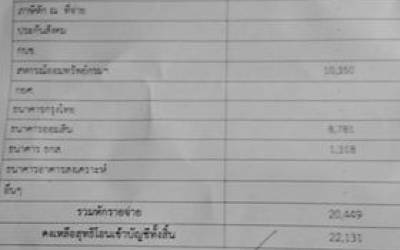 ภาษีหัก ณ ที่จ่าย
ประกันสังคม
กบข.
สหกรณ์ออมทรัพย์กรมฯ 10,350
กยศ.
ธนาคารกรุงไทย
ธนาคารออมสิน 8,781
ธนาคาร ธกส. 1,318
ธนาคารอาคารสงเคราะห์
อื่นๆ
รวมหักรายจ่าย 20,449
คงเหลือสุทธิโอนเข้าบัญชีทั้งสิ้น 22,131